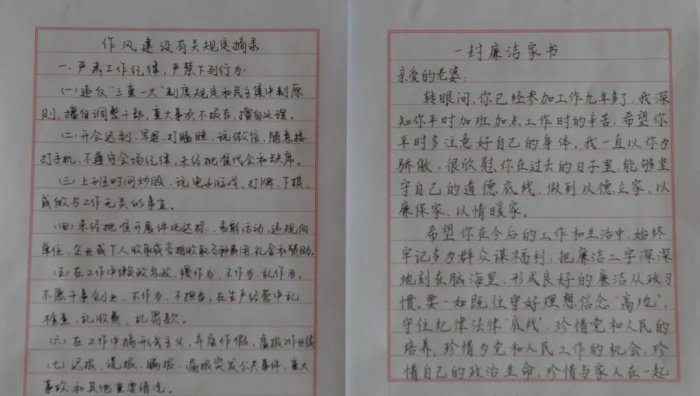 作风建设有关规定摘录
一、严肃工作纪律，严禁下列行为：
(一)违反“三重一大”制度规定和民主集中制原
则，擅自调整干部，重大事项不报告，擅自处理。
(二)开会迟到、早退、打瞌睡、玩微信、随意接
打手机、不遵守会场纪律，未经批准代会和缺席。
(三)上班时间炒股、玩电子游戏、打牌、下棋，
或做与工作无关的事宜。
(四)未经批准开展评比达标、表彰活动，违规向
单位、企业或个人收取或变相收取各种费用、礼金和赞助。
(五)在工作中推诿，慢作为、不作为、乱作为，
不愿干事创业，不作为、不担当，在生产经营中乱
检查、乱收费、乱罚款。
(六)在工作中搞形式主义，弄虚作假，虚报工作业绩
(七)迟报、谎报、瞒报、漏报突发公共事件、重大
事故和其他重要情况。
一封廉洁家书
亲爱的老婆：
转眼间，你已经参加工作九年多了，我深
知你平时加班加点工作时的辛苦，希望你
平时多注意好自己的身体，我一直以你为
骄傲，很欣慰你在过去的日子里，能够坚
守自己的道德底线，做到以德立家、以
廉保家、以情暖家。
希望你在今后的工作和生活中，始终
牢记多为群众谋福利，把廉洁二字深深
地刻在脑海里，形成良好的廉洁从政习
惯，要一如既往守好理想信念“高地”，
守住纪律法律“底线”，珍惜党和人民的
培养，珍惜为党和人民工作的机会，珍
惜自己的政治生命，珍惜与家人在一起